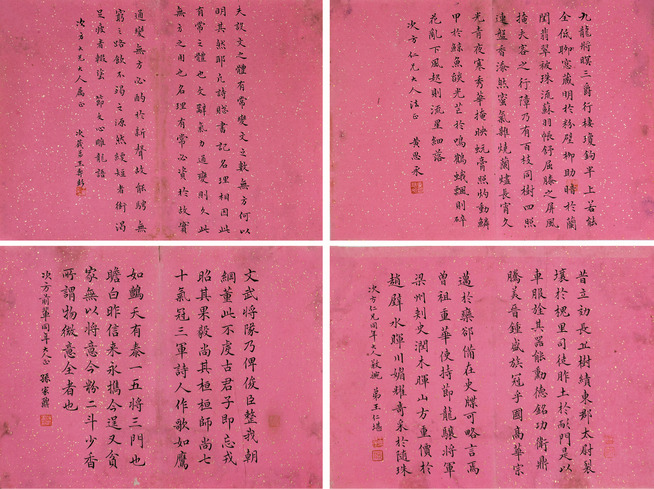 九龍將暝三爵行棲瓊鈎半上若
全低聊窓簾明於粉壁柳助暗於蘭
閨翡翠被珠流蘇羽帳舒屈膝之屏風
掩夫容之行障乃有百枝同樹四照
連盤香添然蜜氣雜燒蘭燼長宵久
光青夜寒秀華掩映蚖膏照灼動鱗
甲於鯨魚燄光芒於鳴鶴蛾飄則碎
花亂下風起則流星細落
次方仁兄大人法正 黃思永
夫設文之體有常變文之數無方何以
明其然耶凡詩賦書記名理相因此
有常之體也文辭氣力通變則久此
無方之用也名理有常必資於故實
通變無方必酌於新聲故能騁無
窮之路飲不渴之源然綆短者銜渴
足疲者輟塗 節文心雕龍語
次方大兄大人屬正
昔立功長丘樹績東郡太尉裂
壤於槐里司徒胙土於耏門是以
車服詮其器能勳德銘功衡鼎
騰美晉鍾盛族冠乎國高華宗
邁於欒郤備在史牒可略言焉
曾祖重華使持節龍驤將軍
梁州刺史潤木暉山方重價於
趙璧水暉川媚耀奇采於隨珠
次方仁兄同年大人 弟王仁堪
文武將隊乃俾俊臣整我朝
綱董此不虔古君子即忘戎
昭其果毅尚其桓桓師尚七
十氣冠三軍詩人作歌如鷹
如鸇天有泰一五將三門也
瞻白昨信來永攜今運又貧
家無以將意今粉二斗少香
所謂物微意全者也
次方前輩同年大人正 孫家鼐